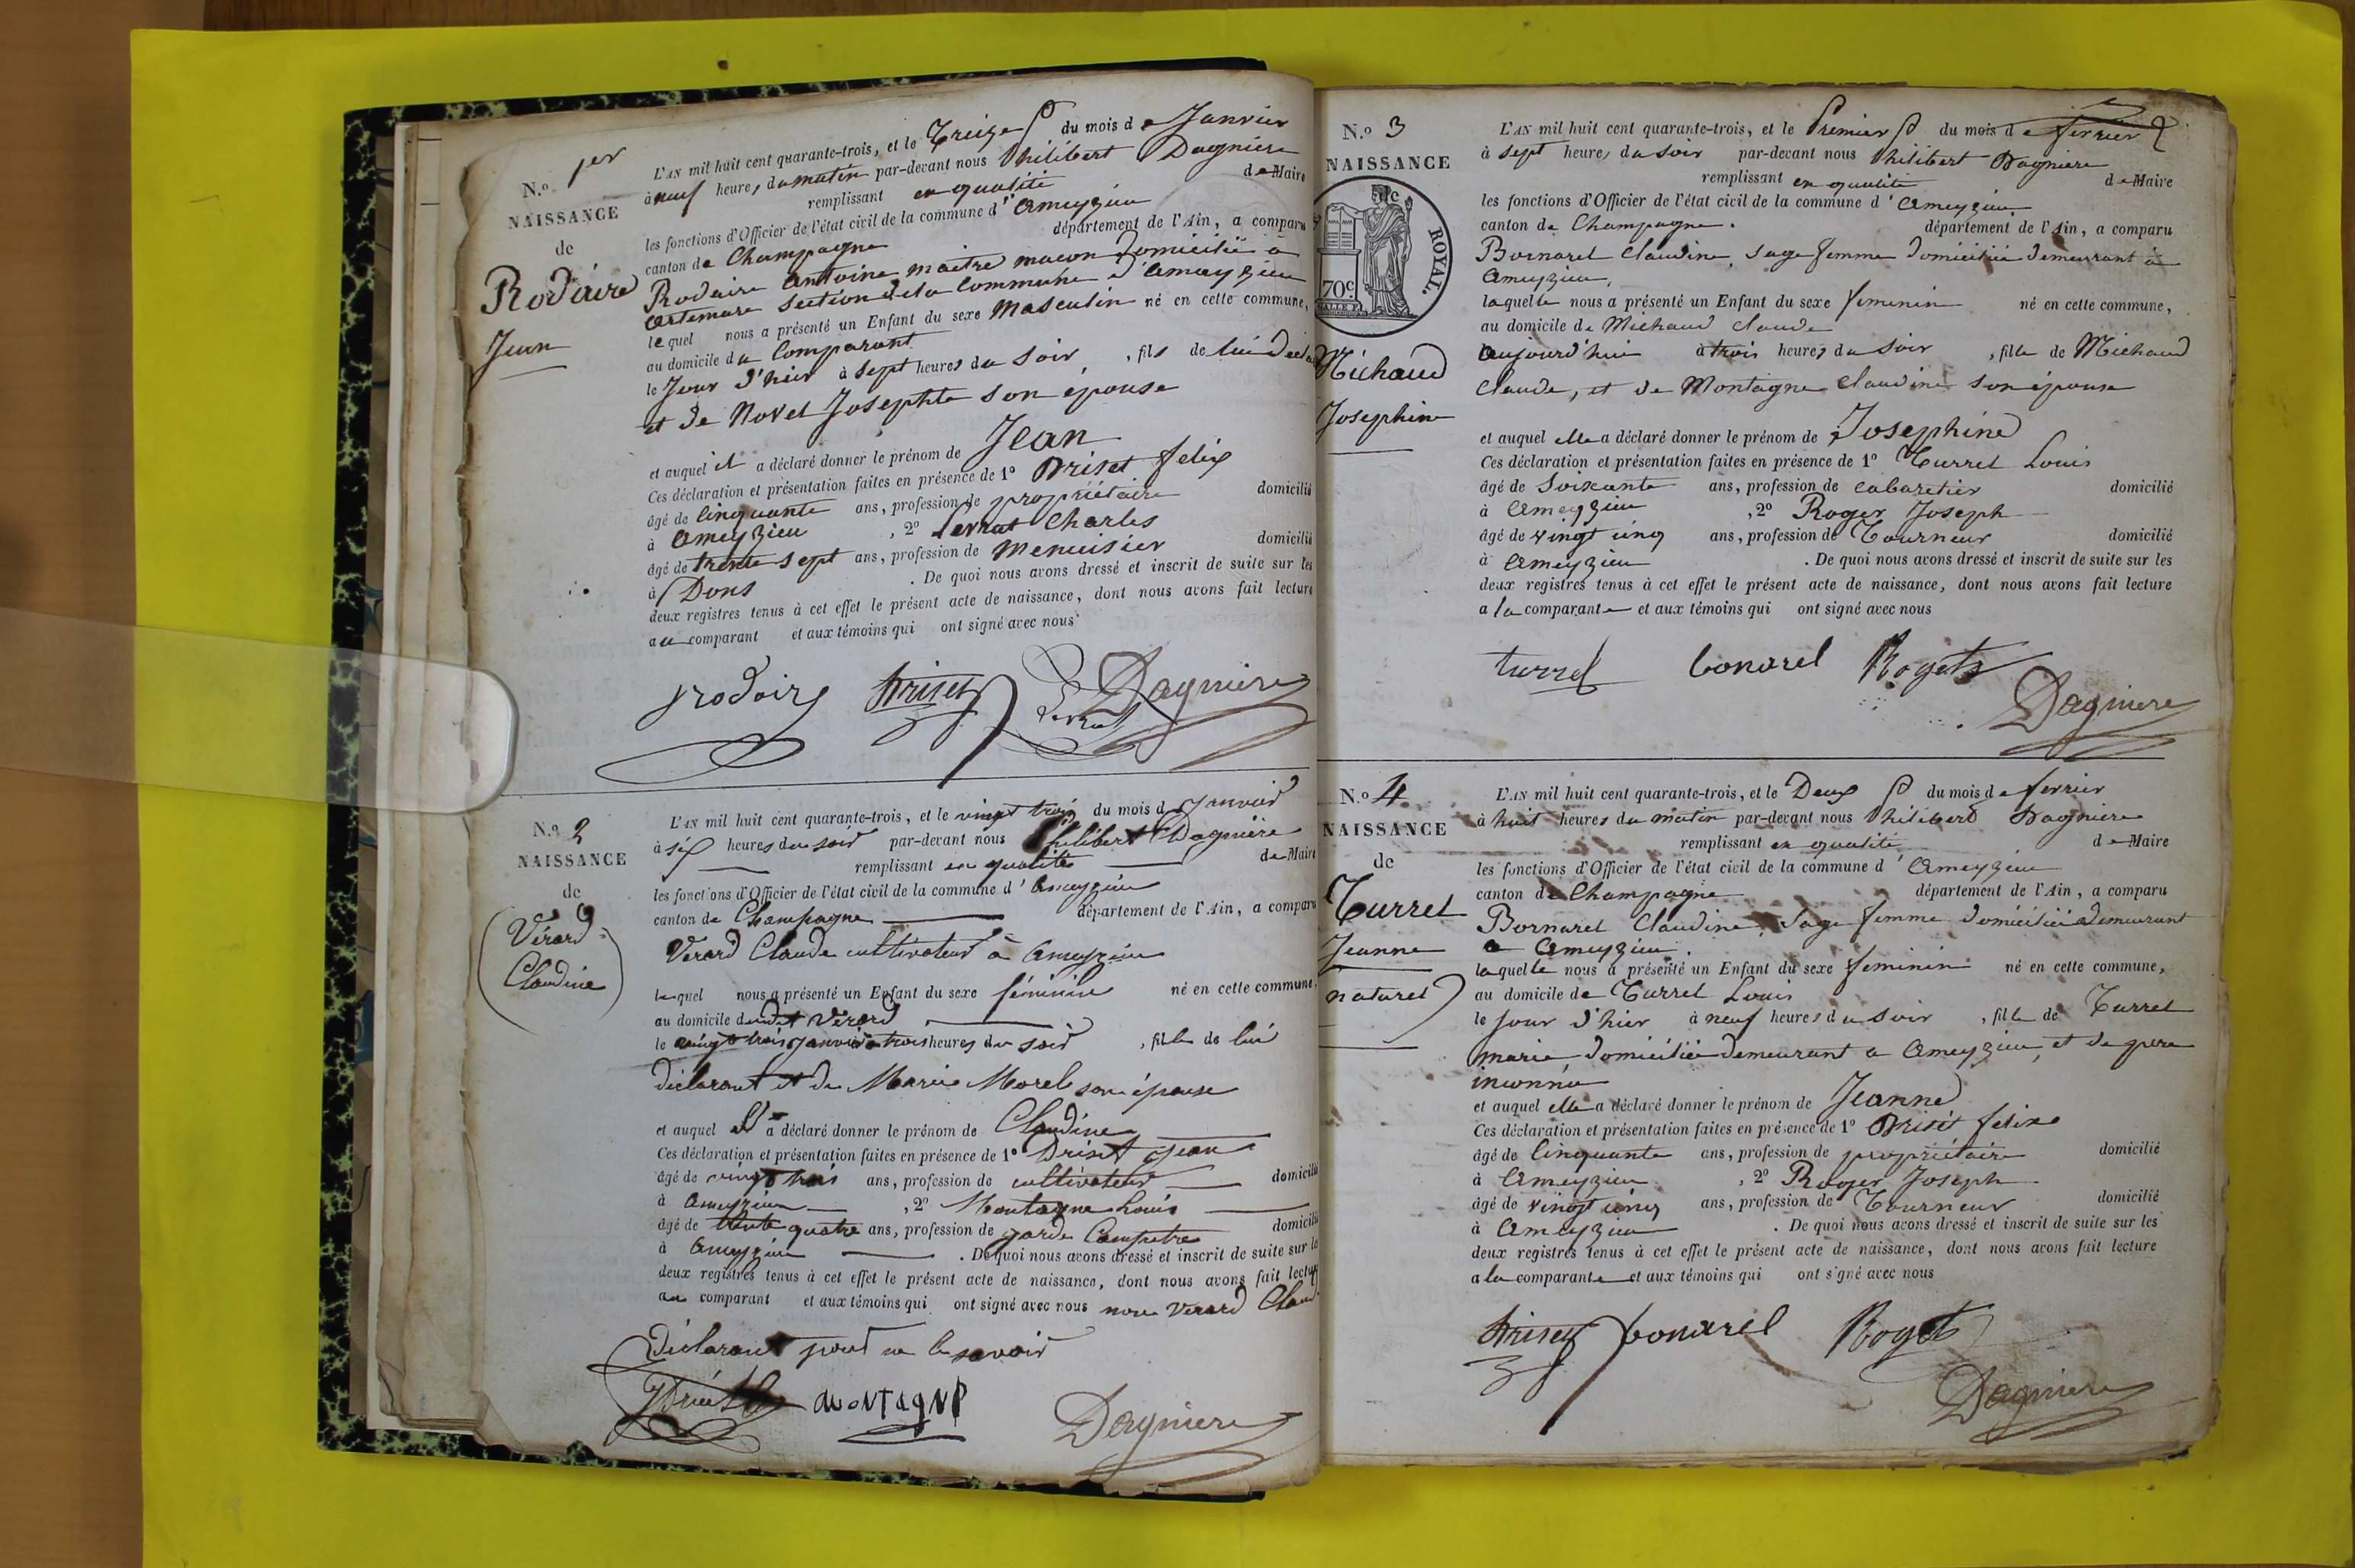 N.º 1er
NAISSANCE
de
Rodaire
Jean
L'AN mil huit cent quarante-trois, et le Treize du mois de Janvier
à neuf heures du matin par-devant nous Philibert Dagniere
remplissant en qualité de Maire
les fonctions d'Officier de l'état civil de la commune d'Ameyzieu
canton de Champagne département de l'Ain, a comparu
Rodaire Antoine maitre macon Domicilié à
Artemare Section de la Commune d'Ameyzieu
lequel nous a présenté un Enfant du sexe Masculin né en cette commune,
au domicile du Comparant
le Jour d'hier à sept heures du Soir, fils de lui
et de Novel Josephte son épouse
et auquel il a déclaré donner le prénom de Jean
Ces déclaration et présentation faites en présence de 1º Briset felix
âgé de Cinquante ans, profession de propriétaire domicilié
à Ameyzieu, 2º Charles
âgé de trente sept ans, profession de Menuisier domicilié
à Dons. De quoi nous avons dressé et inscrit de suite sur les
deux registres tenus à cet effet le présent acte de naissance, dont nous avons fait lecture
au comparant et aux témoins qui ont signé avec nous
rodaire briset Dagniere
N.º 2
NAISSANCE
de
Vérard
Claudine
L'AN mil huit cent quarante-trois, et le vingt trois du mois de Janvier
à six heures du soir par-devant nous Philibert Dagnière
remplissant en qualité de Maire
les fonctions d'Officier de l'état civil de la commune d'Ameyzieu
canton de Champagne département de l'Ain, a comparu
Verard Claude cultivateur à Ameyzieu
lequel nous a présenté un Enfant du sexe féminin né en cette commune,
au domicile dudit Vérard
le vingt trois janvier à trois heures du soir, fille de lui
déclarant et de Marie Morel son épouse
et auquel il a déclaré donner le prénom de Claudine
Ces déclaration et présentation faites en présence de 1º Briset Jean
âgé de vingt trois ans, profession de cultivateur domicilié
à Ameyzieu, 2º Montagne Louis
âgé de trente quatre ans, profession de garde Campetre domicilié
à Ameyzieu. De quoi nous avons dressé et inscrit de suite sur les
deux registres tenus à cet effet le présent acte de naissance, dont nous avons fait lecture
au comparant et aux témoins qui ont signé avec nous non Verard Claud
Déclarant pour ne le savoir
montagne Dagniere
N.º 3
NAISSANCE
de
ROYAL.
70c
Michaud
Josephine
L'AN mil huit cent quarante-trois, et le Premier du mois de fevrier
à sept heures du soir par-devant nous Philibert Dagniere
remplissant en qualité de Maire
les fonctions d'Officier de l'état civil de la commune d'Ameyzieu
canton de Champagne. département de l'Ain, a comparu
Bornarel Claudine, sage femme domiciliée demeurant à
Ameyzieu,
laquelle nous a présenté un Enfant du sexe feminin né en cette commune,
au domicile de Michaud claude
aujourd'hui à trois heures du Soir, fille de Michaud
Claude, et de Montagne Claudine son épouse
et auquel elle a déclaré donner le prénom de Josephine
Ces déclaration et présentation faites en présence de 1º Turrel Louis
âgé de Soixante ans, profession de cabaretier domicilié
à Ameyzieu, 2º Roger Joseph
âgé de vingt cinq ans, profession de Tourneur domicilié
à Ameyzieu. De quoi nous avons dressé et inscrit de suite sur les
deux registres tenus à cet effet le présent acte de naissance, dont nous avons fait lecture
a la comparante et aux témoins qui ont signé avec nous
turrel bonarel Rogets
Dagniere
N.º 4
NAISSANCE
de
Turrel
Jeanne
naturel
L'AN mil huit cent quarante-trois, et le Deux du mois de fevrier
à huit heures du matin par-devant nous Philibert Dagniere
remplissant en qualité de Maire
les fonctions d'Officier de l'état civil de la commune d'Ameyzieu
canton de Champagne département de l'Ain, a comparu
Bornarel Claudine, Sage femme domiciliée demeurant
a Ameyzieu.
laquelle nous a présenté un Enfant du sexe feminin né en cette commune,
au domicile de Turrel Louis
le Jour d'hier à neuf heures du Soir, fille de Turrel
marie domiciliée demeurant a Ameyzieu, et de pere
inconnu
et auquel elle a déclaré donner le prénom de Jeanne
Ces déclaration et présentation faites en présence de 1º Briset felix
âgé de Cinquante ans, profession de propriétaire domicilié
à Ameyzieu, 2º Roger Joseph
âgé de vingt cinq ans, profession de Tourneur domicilié
à Ameyzieu. De quoi nous avons dressé et inscrit de suite sur les
deux registres tenus à cet effet le présent acte de naissance, dont nous avons fait lecture
a la comparante et aux témoins qui ont signé avec nous
briset bonarel Rogets
Dagniere